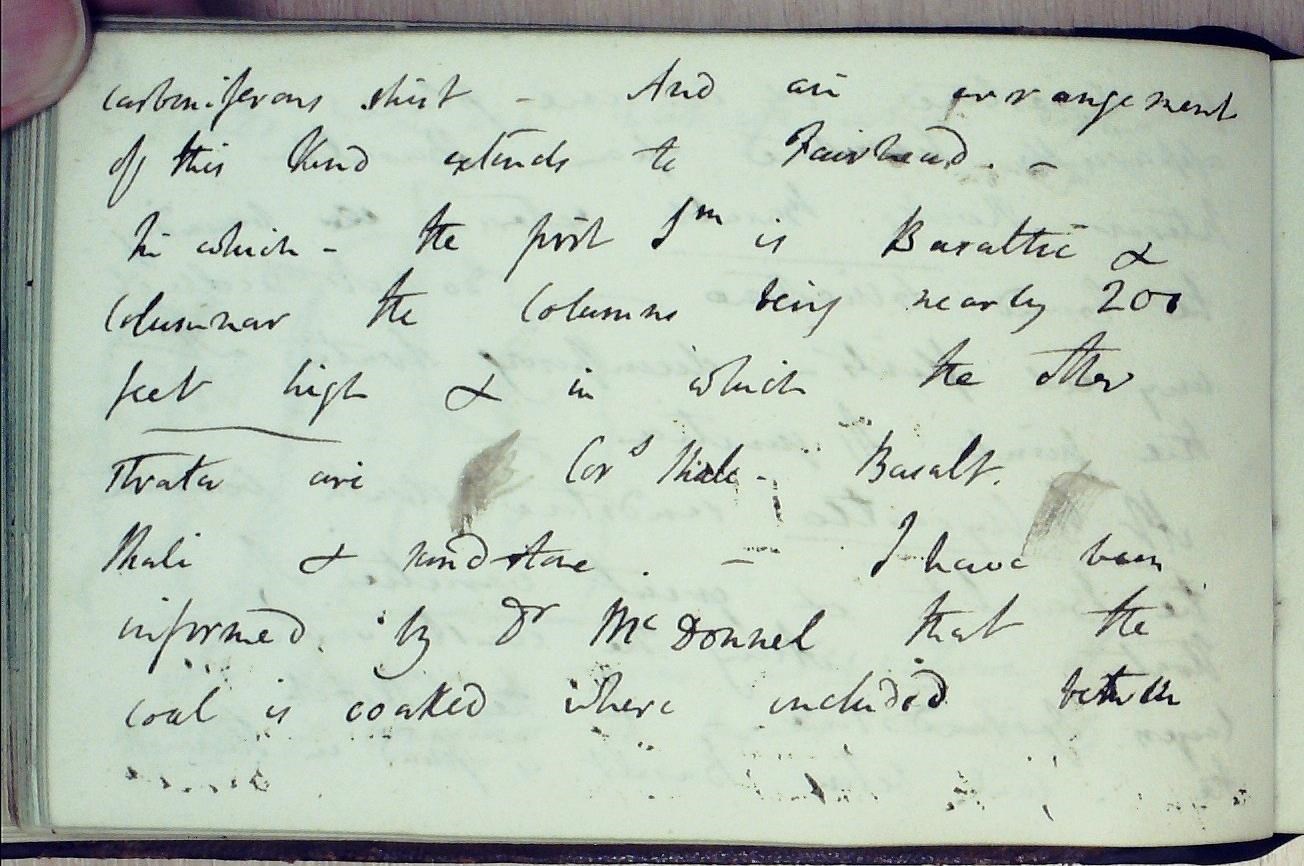 carboniferous shist - And an arrangement
of this kind extends to Fairhead. -
In which - the first Sm is Basaltic &
Columnar the Columns being nearly 200
feet high & in which the other
strata are Cors Shale - Basalt.
Shale & sandstone. - I have been
informed by Dr McDonnel that the
coal is coaked where included between